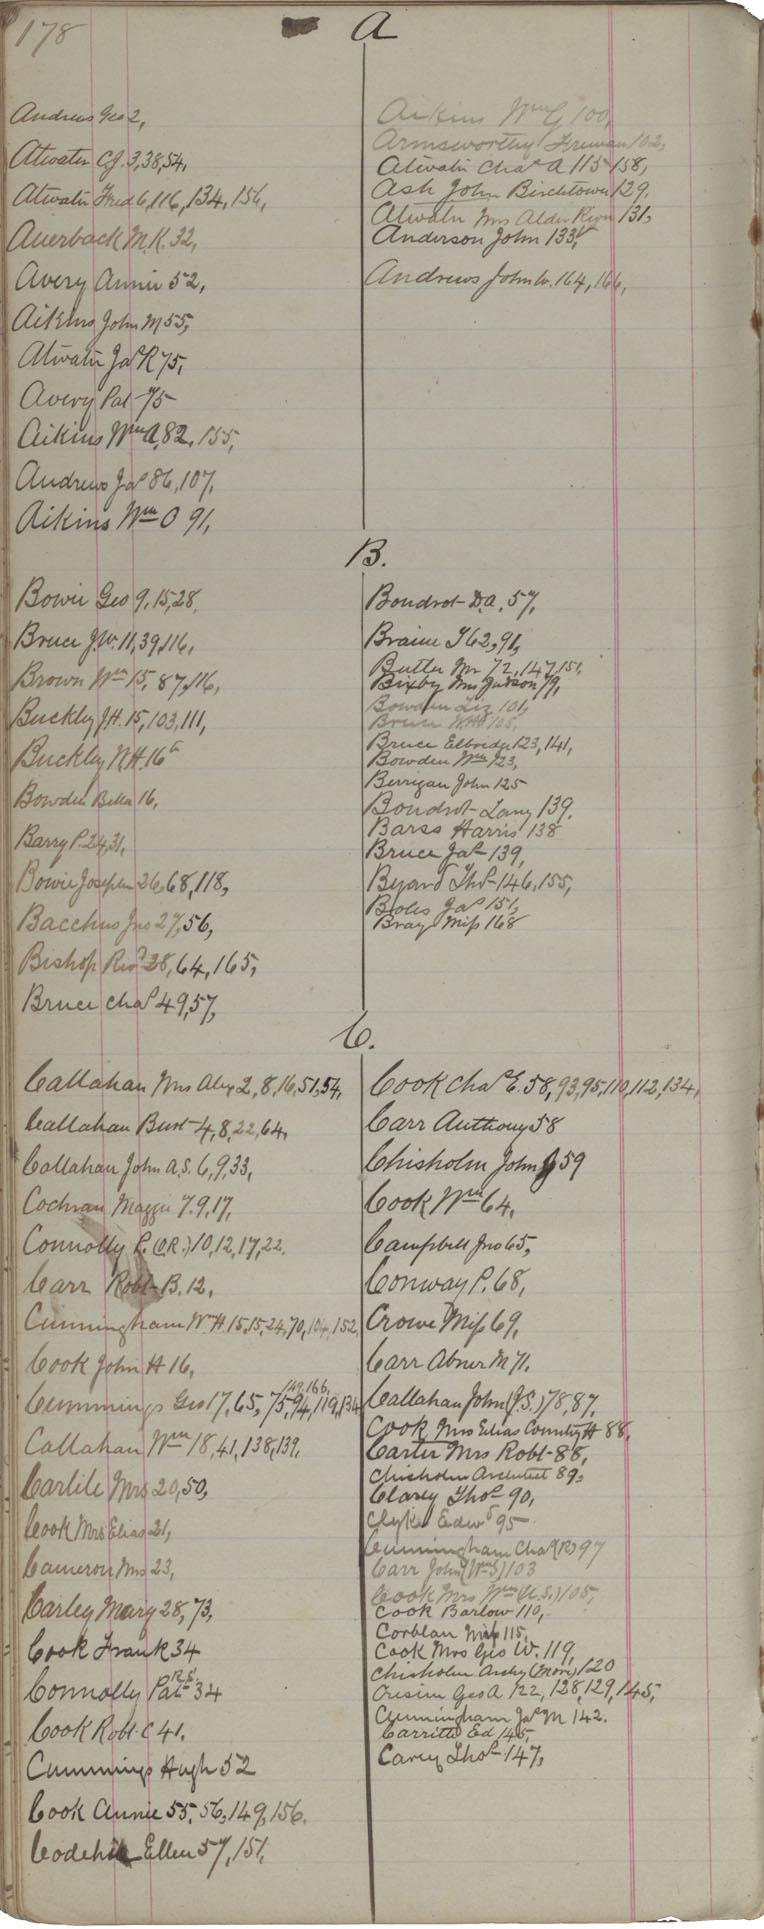 178
A
Andrews Geo 2,
Atwater C.J. 3, 38, 54,
Atwater Fred 6, 116, 134, 156,
Auerback M.K. 32,
Avery Annie 52,
Aikins John M 55,
Atwater Jas R 75,
Avery Pat 75
Aikins Wm A. 82, 155,
Andrews Jas 86, 107,
Aikins Wm O 91,
Aikins Wm G 100,
Armsworthy Freeman 102,
Atwater Chas A 115 158,
Ash John Birchtown 129,
Atwater Mrs Alder River 131,
Anderson John 133
Andrews John W. 164, 166,
B.
Bowie Geo 9, 15, 28,
Bruce J.W. 11, 39, 116,
Brown Wm 15, 87, 116,
Buckley J.H. 15, 103, 111,
Buckley N.H. 16
Bowden Bella 16,
Barry P. 24, 31,
Bowie Joseph 26, 68, 118,
Bacchus Jno 27, 56,
Bishop 28, 64, 165,
Bruce Chas 49, 57,
Boudrot D.A. 57,
Braine T 62, 91,
Butler Mr 72, 147, 151,
Bixby Mrs Judson 79,
Bowden Liz 101,
Bruce 105,
Bruce Elbridge 123, 141,
Bowden Wm 123,
Berrigan John 125
Boudrot Lamy 139,
Barss Harris 138
Bruce Jas 139,
Byard Thos 146, 155,
Boles Jas 151,
Bray Miss 168
C.
Callahan Mrs Alex 2, 8, 16, 51, 54,
Callahan Burt 4, 8, 22, 64,
Callahan John A.S. 6, 9, 33,
Cochran Maggie 7, 9, 17,
Connolly P. (O.R.) 10, 12, 17, 22.
Carr Robt B. 12,
Cunningham Wm H 15, 15, 24, 70, 104, 152,
Cook John H 16,
149, 166,
Cummings Geo 17, 65, 75, 94, 119, 134
Callahan Wm 18, 41, 138, 139,
Carlile Mrs 20, 50,
Cook Mrs Elias 21,
Cameron Mrs 23,
Carley Mary 28, 73,
Cook Frank 34
Connolly Pat R.S. 34
Cook Robt C 41,
Cummings Hugh 52
Cook Annie 55, 56, 149, 156.
Ellen 57, 151,
Cook Chas E. 58, 93, 95, 110, 112, 134,
Carr Anthony 58
Chisholm John J 59
Cook Wm 64,
Campbell Jno 65,
Conway P. 68,
Crowe Miss 69,
Carr Abner M 71,
Callahan John (J.S.) 78, 87,
Cook Mrs Elias Country H 88,
Carter Mrs Robt 88,
Chisholm Architect 89,
Clarey Thos 90,
Clyke Edwd 95
Cunningham Chas (R) 97
Carr John (Wm S) 103
Cook Mrs Wm (U.S.) 105,
Cook Barlow 110,
Corbean Miss 115,
Cook Mrs Geo W. 119,
Chisholm Archy 120
Geo A 122, 128, 129, 145,
Cunningham Jas M 142.
Carritte Ed 145,
Carey Thos 147,